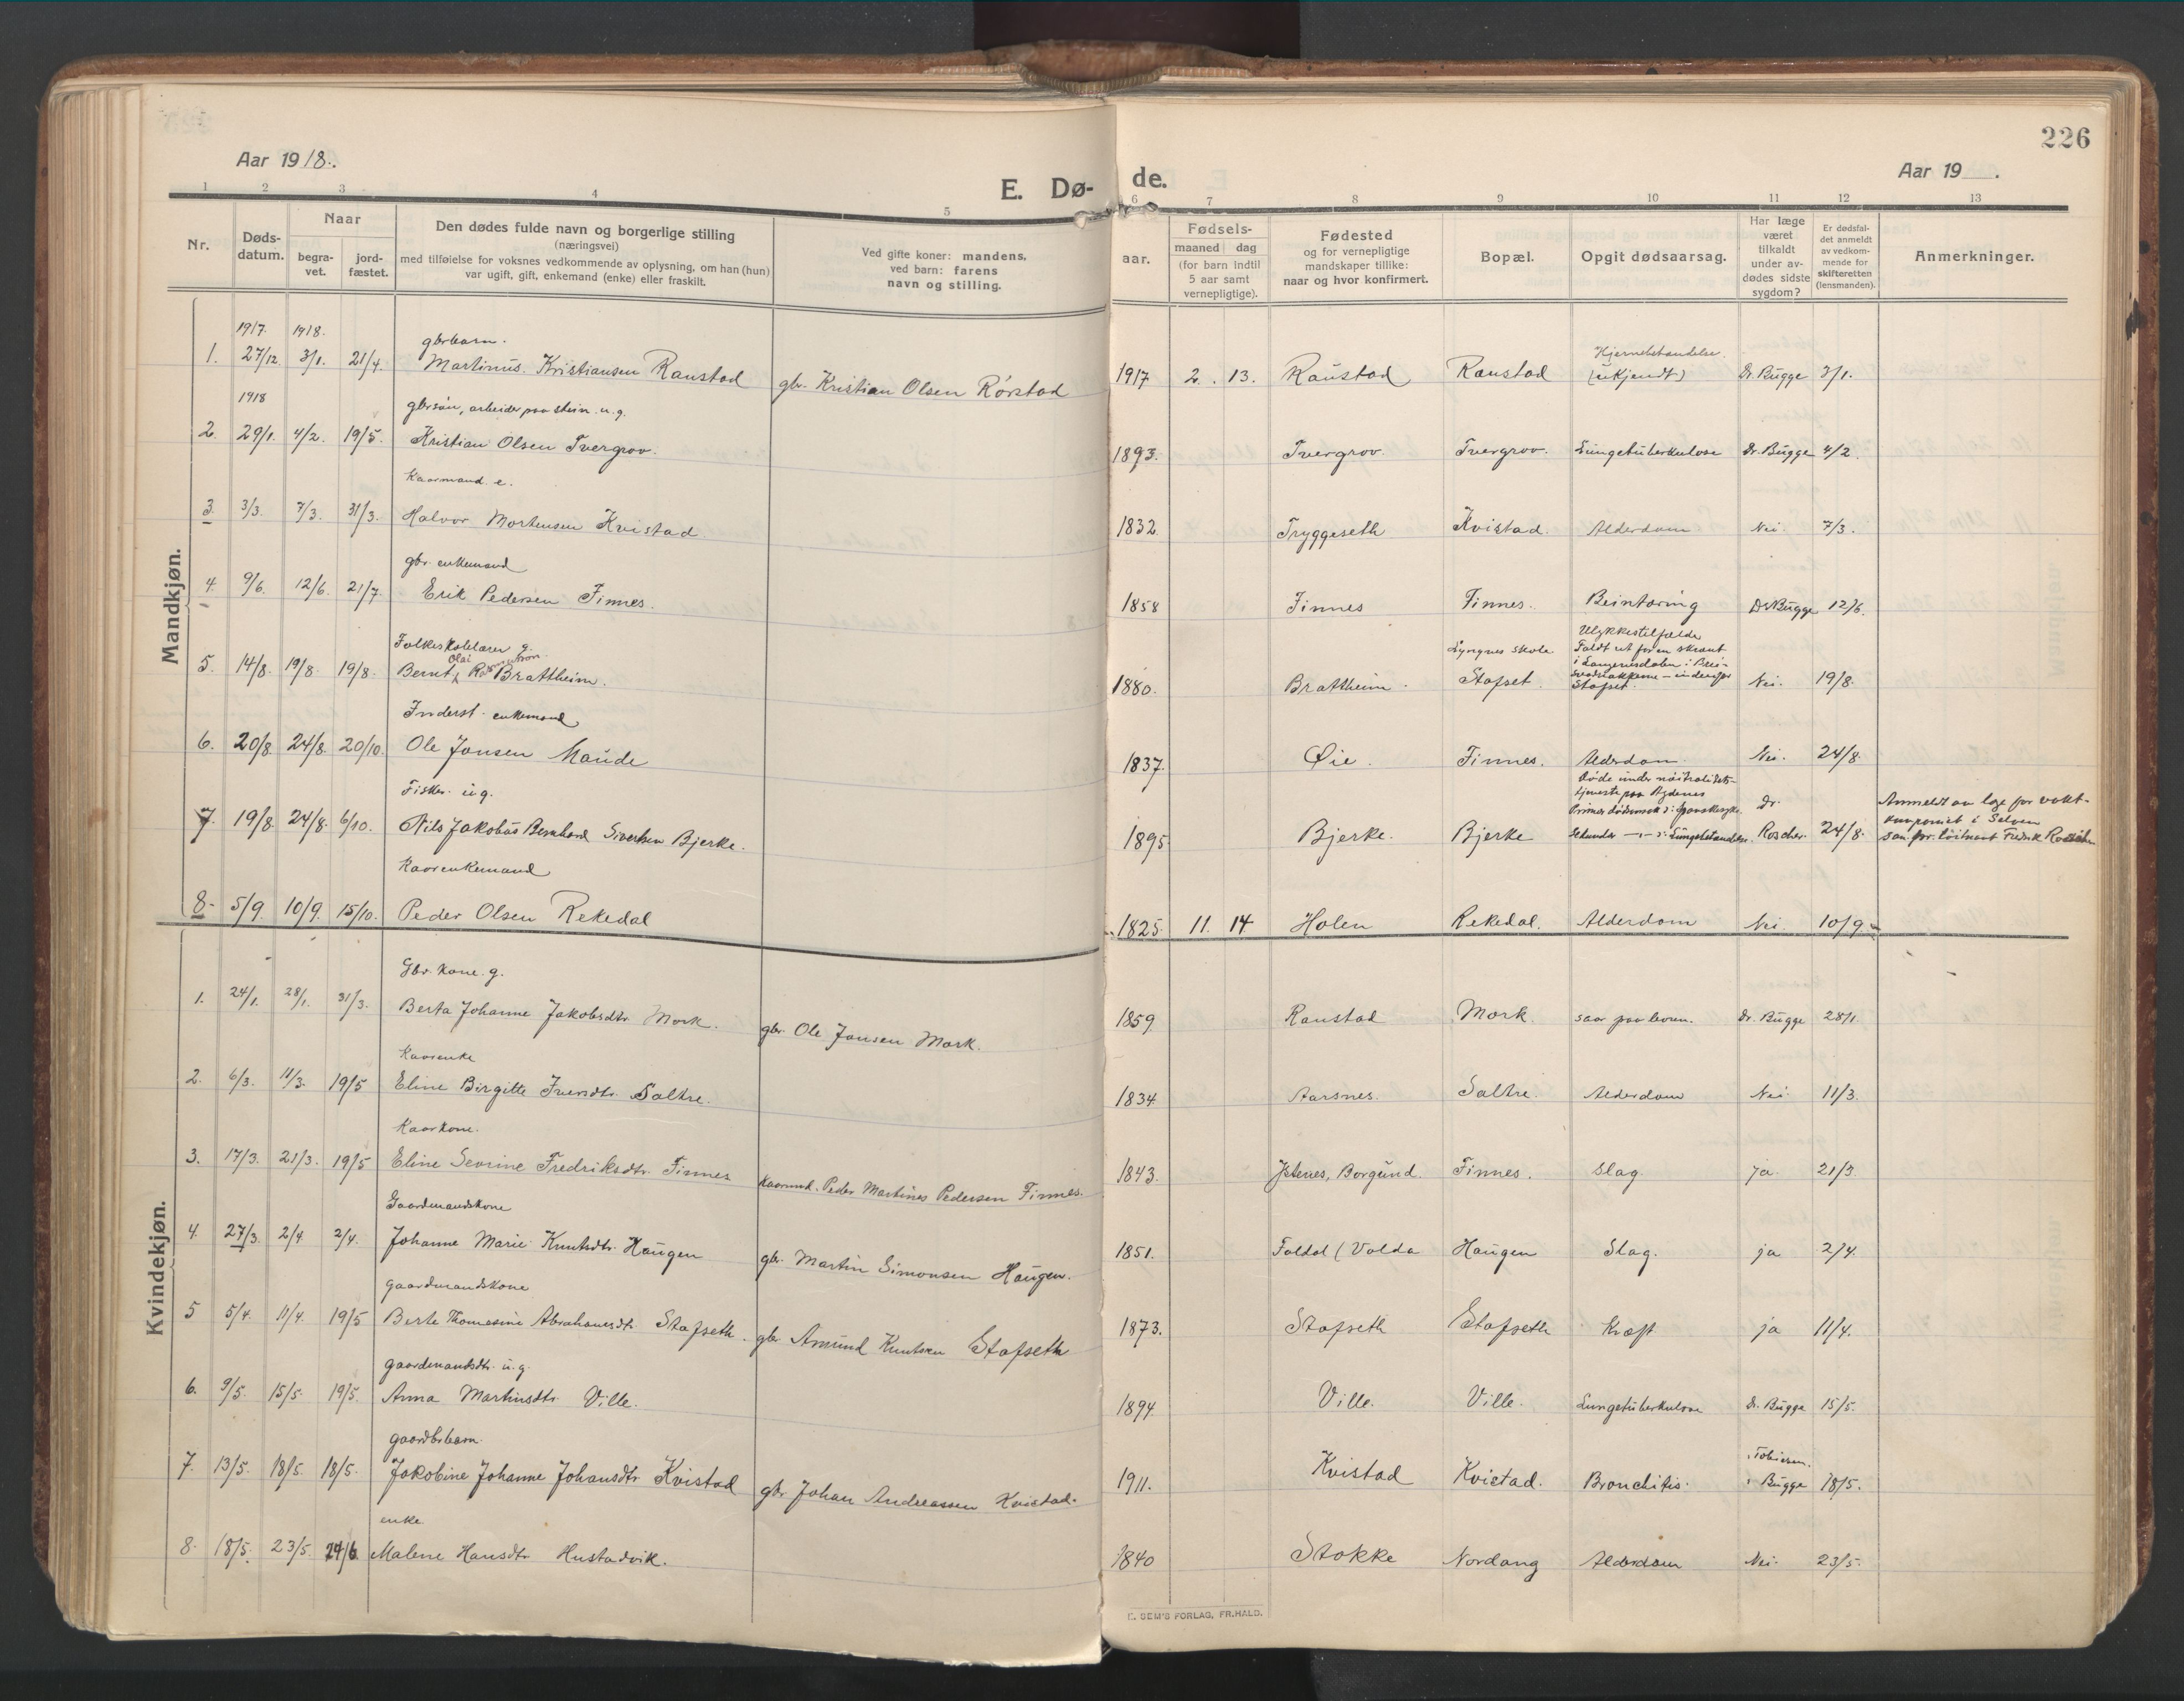 226
Aar 1918.
Aar 19 .
E. Dø- de.
1 2 3 4 5 6 7 8 9 10 11 12 13
Nr.
Døds-
datum.
Naar
begra-
vet.
jord-
fæstet.
Den dødes fulde navn og borgerlige stilling
(næringsvei)
med tilføielse for voksnes vedkommende av oplysning, om han (hun)
var ugift, gift, enkemand (enke) eller fraskilt.
Ved gifte koner: mandens,
ved barn: farens
navn og stilling.
Fødsels-
aar.
maaned dag
(for barn indtil
5 aar samt
vernepligtige).
Fødested
og for vernepligtige
mandskaper tillike:
naar og hvor konfirmert.
Bopæl.
Opgit dødsaarsag.
Har læge
været
tilkaldt
under av-
dødes sidste
sygdom?
Er dødsfal-
det anmeldt
av vedkom-
mende for
skifteretten
(lensmanden).
Anmerkninger.
Mandkjøn.
1917. 1918. gbrbarn. Hjernebetændelse
1. 27/12 3/1. 21/4. Martinus Kristiansen Raustad gbr. Kristian Olsen Rørstad 1917 2. 13. Raustad Raustad (ukjendt) Dr. Bugge 3/1.
1918 gbrsøn, arbeider paa stein. u.g.
2. 29/1. 4/2. 19/5. Kristian Olsen Tvergrov. 1893. Tvergrov. Tvergrov. Lungetuberkulose Dr. Bugge 4/2.
Kaarmand. e.
3. 3/3. 7/3. 31/3. Halvor Mortensen Kvistad. 1832 Tryggeseth Kvistad. Alderdom Nei. 7/3.
gbr. enkemand
4. 9/6. 12/6 21/7 Erik Pedersen Finnes. 1858 Finnes Finnes. Beintæring Dr Bugge 12/6.
Folkeskolelærer g. Ulykkestilfælde
Olai Lyngnes skole Faldt ut for en skrent
5. 14/8. 19/8. 19/8. Bernt Brattheim. 1880. Brattheim. Stafset. Stafset. Nei. 19/8.
Inderst. enkemand
6. 20/8. 24/8. 20/10. Ole Jonsen Maude 1837. Øie. Finnes. Alderdom. Nei. 24/8.
Fisker. ug. Døde under nøitralitets-
tjeneste paa Agdenes
Primær dødsaarsak: Spanskesyke. Dr. Anmeldt av læge for vakt-
kompaniet i Selven
7. 19/8. 24/8. 6/10. Nils Jakobus Bernhard Sivertsen Bjerke. 1895 Bjerke. Bjerke Sekundær —"— : Lungebetændelse. Roscher. 24/8. san.pr.løitnant Fredrik Roscher
Kaarenkemand
8. 5/9. 10/9. 15/10. Peder Olsen Rekedal 1825. 11. 14 Holen Rekedal. Alderdom Nei. 10/9
Kvindekjøn.
Gbr. kone. g.
1. 24/1. 28/1. 31/3. Berta Johanne Jakobsdtr. Mork. gbr Ole Jonsen Mork. 1859 Raustad Mork. saar paa benene. Dr. Bugge 28/1
Kaarenke
2. 6/3. 11/3. 19/5 Eline Birgitte Iversdtr. Saltre. 1834. Aarsnes. Saltre. Alderdom Nei. 11/3.
Kaarkone.
3. 17/3. 21/3. 19/5 Eline Sevrine Fredriksdtr. Finnes Kaarmd. Peder Martines Pedersen Finnes. 1843. Ystenes, Borgund. Finnes. Slag. ja. 21/3.
Gaardmandskone
4. 27/3. 2/4. 2/4. Johanne Marie Knutsdtr. Haugen gbr. Martin Simonsen Haugen. 1851. Foldal (Volda Haugen Slag. ja 2/4.
gaardmandskone
5 5/4. 11/4. 19/5 Berte Thomasine Abrahamsdtr. Stafseth. gbr Amund Knutsen Stafseth 1873. Stafseth Stafseth Kræft ja 11/4.
gaardmandsdtr. u.g.
6. 9/5. 15/5. 19/5. Anna Martinsdtr Ville. 1894. Ville. Ville. Lungetuberkulose Dr. Bugge 15/5.
gaardbrbarn. Tobiesen.
7. 13/5. 18/5. 18/5. Jakobine Johanne Johansdtr Kvistad gbr Johan Andreassen Kvistad. 1911. Kvistad Kvistad. Bronchitis. Bugge 18/5.
enke
8. 18/5. 23/5. 24/6 Malene Hansdtr Hustadvik. 1840 Stokke Nordang Alderdom Nei. 23/5.
E. SEM'S FORLAG, FR.HALD.